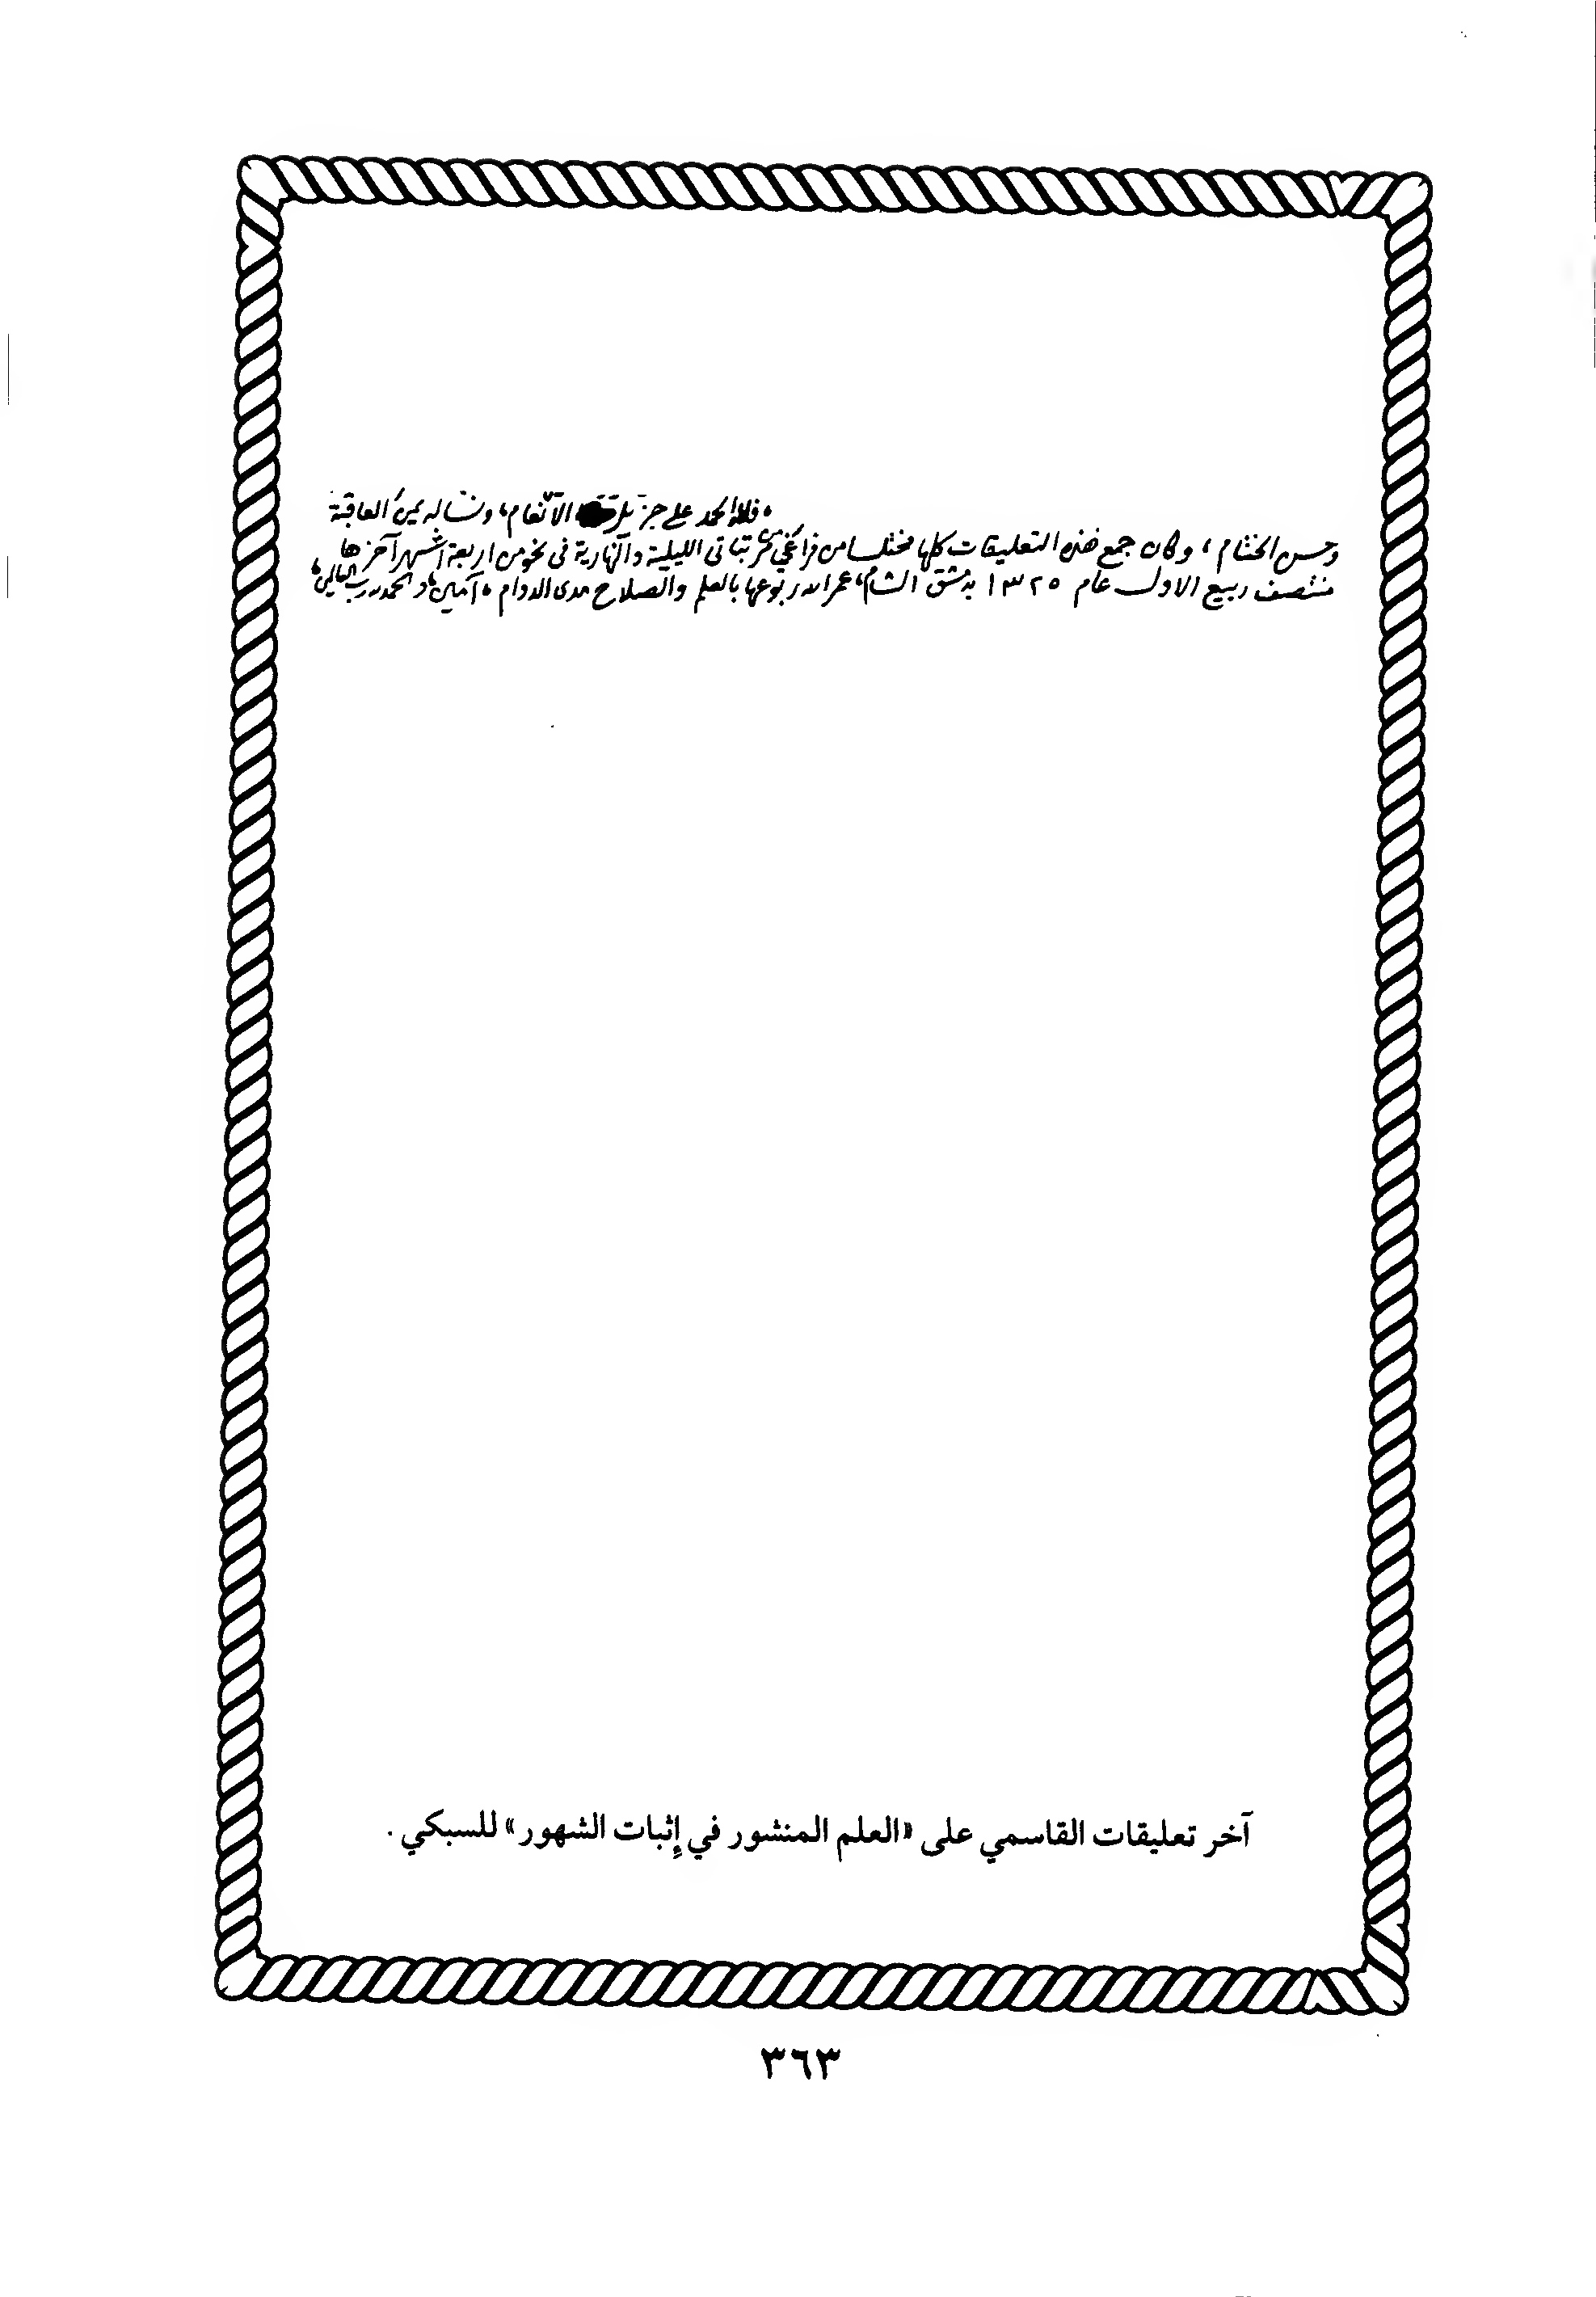 فلله الحمد على جزيل الانعام، ونساله يمن العاقبة
وحسن الختام، وكان جمع هذه التعليقات كلها مختلسا من فراغي من مرتباتى الليلية والنهارية فى نحو من اربعة اشهر آخرها
منتصف ربيع الاول عام ١٣٢٥ بدمشق الشام، عمر الله ربوعها بالعلم والصلاح مدى الدوام، آمين، والحمد لله رب العالمين،
آخر تعليقات القاسمي على «العلم المنشور في إثبات الشهور» للسبكي .
٣٦٣